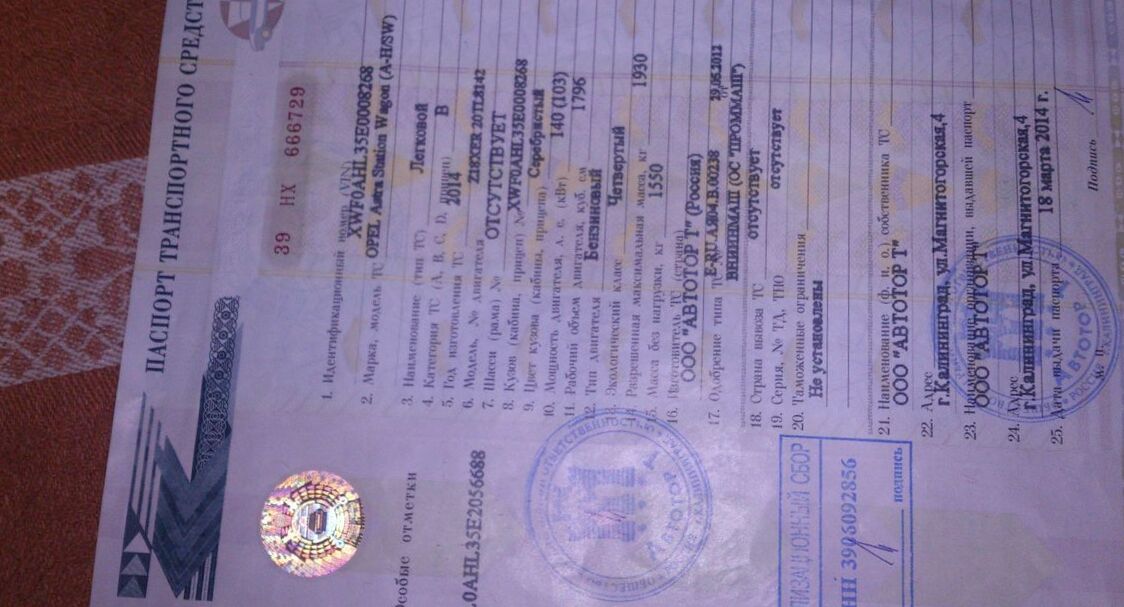 ПАСПОРТ ТРАНСПОРТНОГО СРЕДСТ
39 НХ 666729
1. Идентификационный номер (VIN) XWF0AHL35E0008268
2. Марка, модель ТС OPEL Astra Station Wagon (A-H/SW)
3. Наименование (тип ТС) Легковой
4. Категория ТС (А, В, С, D, прицеп) B
5. Год изготовления ТС 2014
6. Модель, № двигателя Z18XER 20TL8142
7. Шасси (рама) № ОТСУТСТВУЕТ
8. Кузов (кабина, прицеп) № XWF0AHL35E0008268
9. Цвет кузова (кабины, прицепа) Серебристый
10. Мощность двигателя, л. с. (кВт) 140 (103)
11. Рабочий объем двигателя, куб. см 1796
12. Тип двигателя Бензиновый
13. Экологический класс Четвертый
14. Разрешенная максимальная масса, кг 1930
15. Масса без нагрузки, кг 1550
16. Изготовитель ТС (страна)
ООО "АВТОТОР Т" (Россия)
17. Одобрение типа ТС № E-RU.АЯ04.B.00238 от 29.05.2012
ВНИИНМАШ (ОС "ПРОММАШ")
18. Страна вывоза ТС отсутствует
19. Серия, № ТД, ТПО отсутствует
20. Таможенные ограничения
Не установлены
21. Наименование (ф. и. о.) собственника ТС
ООО "АВТОТОР Т"
22. Адрес
г.Калининград, ул.Магнитогорская,4
23. Наименование организации, выдавшей паспорт
ООО "АВТОТОР Т"
24. Адрес
г.Калининград, ул.Магнитогорская,4
25. Дата выдачи паспорта 18 марта 2014 г.
М. П.
Подпись
Особые отметки
.0AHL35E2056688
АВТОТОР
ЛИЗАЦИОННЫЙ СБОР
НН 3905092856
подпись
АВТОТОР